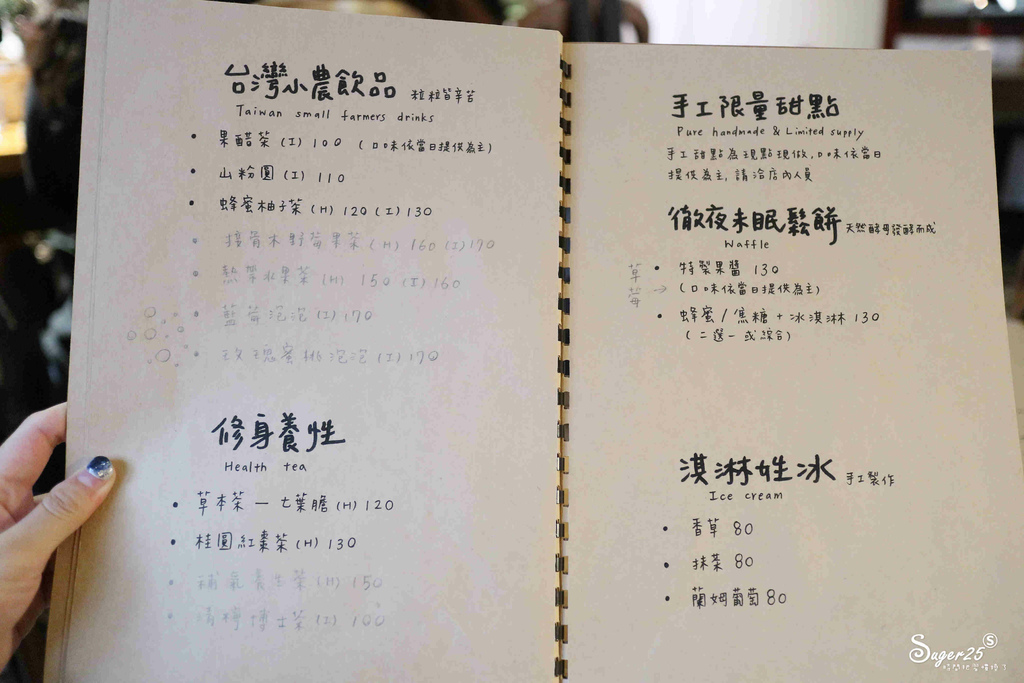 台灣小農飲品 粒粒皆辛苦
Taiwan small farmers drinks
• 果醋茶 (I) 100 (口味依當日提供為主)
• 山粉圓 (I) 110
• 蜂蜜柚子茶 (H) 120 (I) 130
• 接骨木野莓果茶 (H) 160 (I) 170
• 熱帶水果茶 (H) 150 (I) 160
• 藍莓泡泡 (I) 170
• 玫瑰蜜桃泡泡 (I) 170
修身養性
Health tea
• 草本茶 — 七葉膽 (H) 120
• 桂圓紅棗茶 (H) 130
• 補氣養生茶 (H) 150
• 檸檬博士茶 (I) 100
手工限量甜點
Pure handmade & Limited supply
手工甜點為現點現做,口味依當日
提供為主,請洽店內人員
徹夜未眠鬆餅 天然酵母發酵而成
Waffle
草莓 →
• 特製果醬 130
(口味依當日提供為主)
• 蜂蜜 / 焦糖 + 冰淇淋 130
(二選一或綜合)
淇淋姓冰 手工製作
Ice cream
• 香草 80
• 抹茶 80
• 蘭姆葡萄 80
Suger25 S